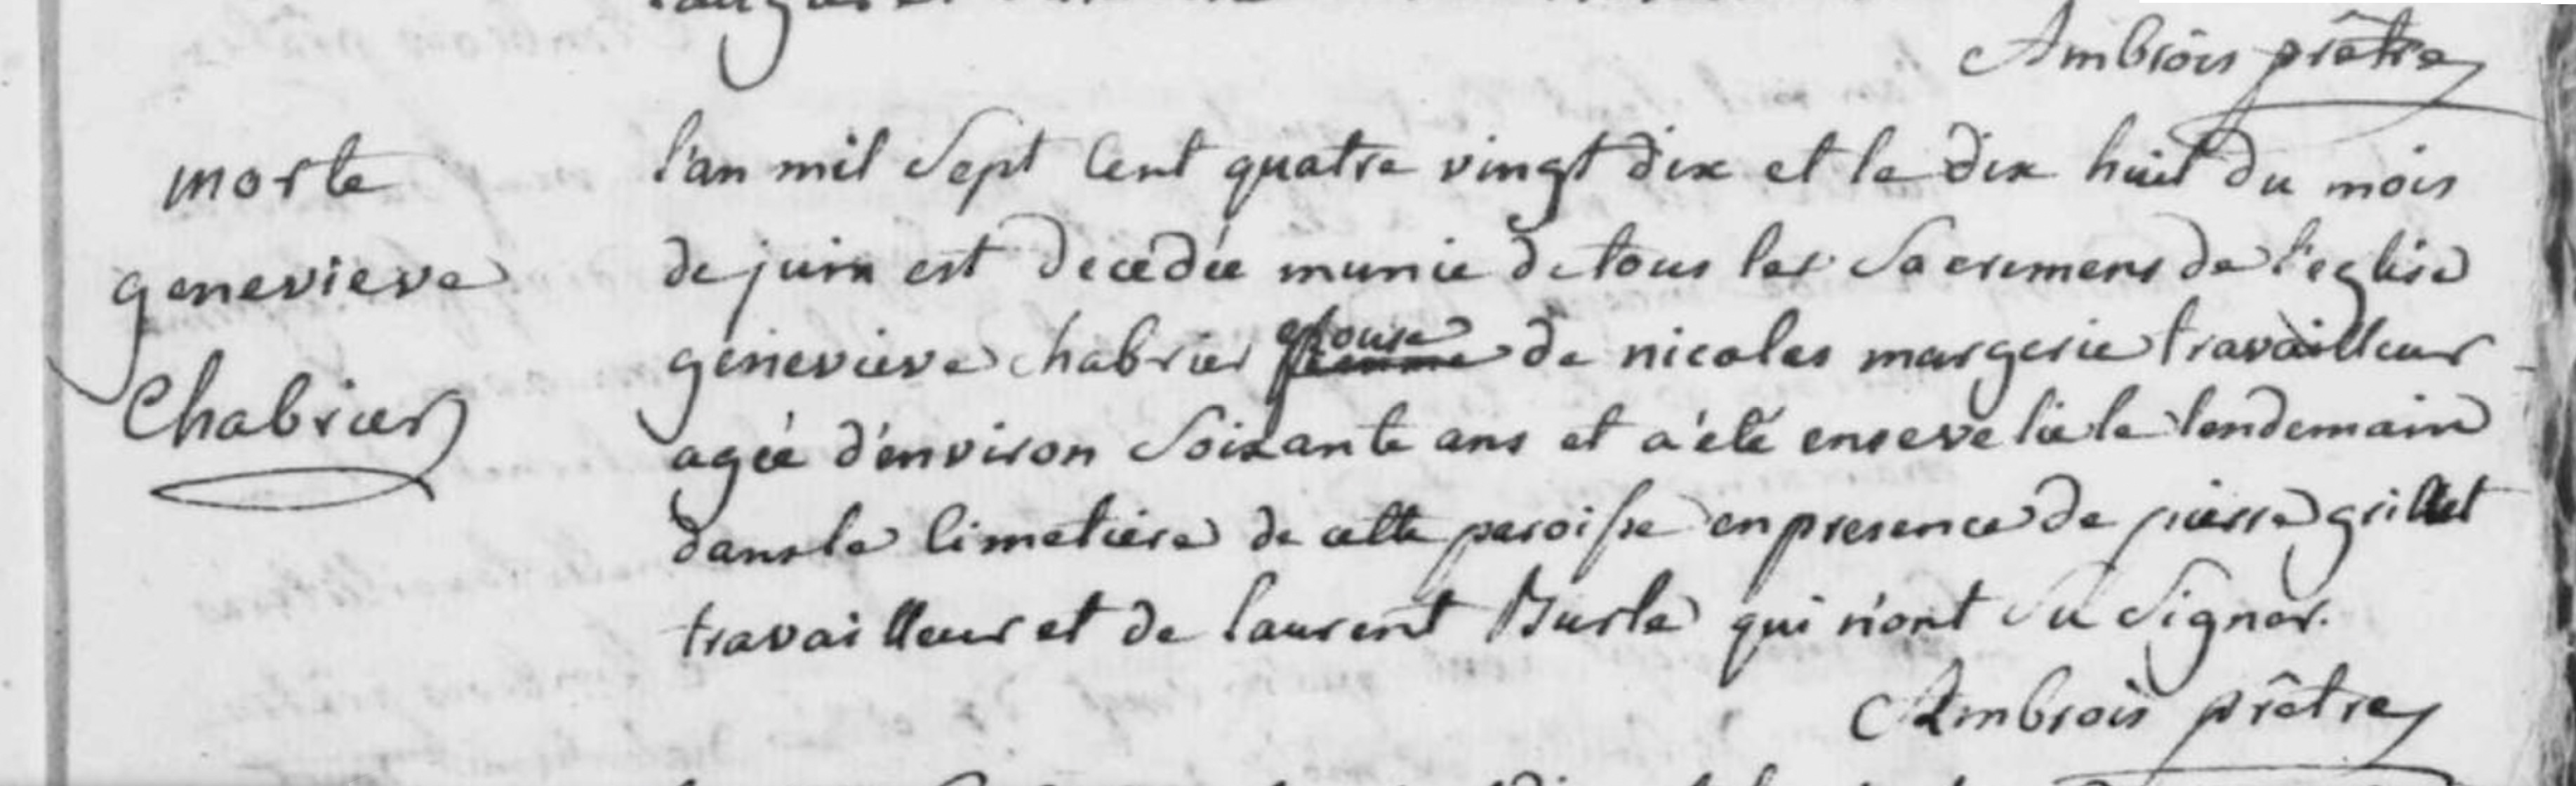 Ambrois prêtre
morte
genevieve
Chabrier
l'an mil Sept Cent quatre vingt dix et le dix huit du mois
de juin est decedée munie de tous les Sacremens de l'eglise
genevieve chabrier epouse femme de nicolas margerie travailleur
agée d'environ Soixante ans et a été ensevelie le lendemain
dans le Cimetiere de cette paroisse en presence de pierre grillet
travailleur et de laurent Burle qui n'ont Su Signer.
Ambrois prêtre